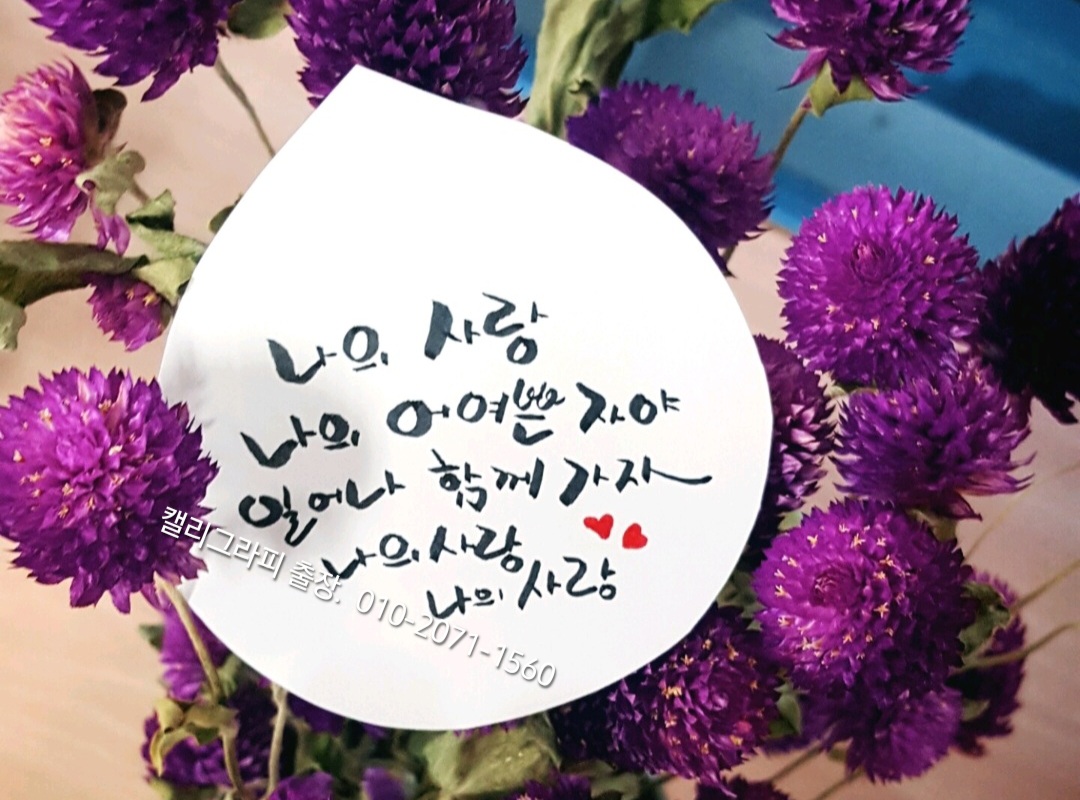 나의 사랑
나의 어여쁜 자야
일어나 함께 가자
나의 사랑
나의 사랑
캘리그라피 출장. 010-2071-1560